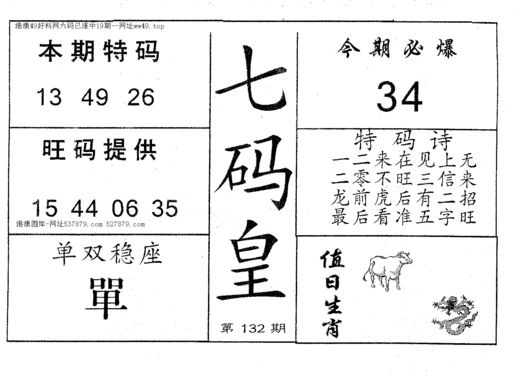 港澳49好料网六码已连中19期--网址ww49.top
本期特码
13 49 26
旺码提供
15 44 06 35
港澳图库-网址537879.com 527879.com
单双稳座
單
七码皇
第 132 期
今期必爆
34
特码诗
一二来在见上无
二零不旺三信来
龙前虎后有二招
最后看准五字旺
值日生肖